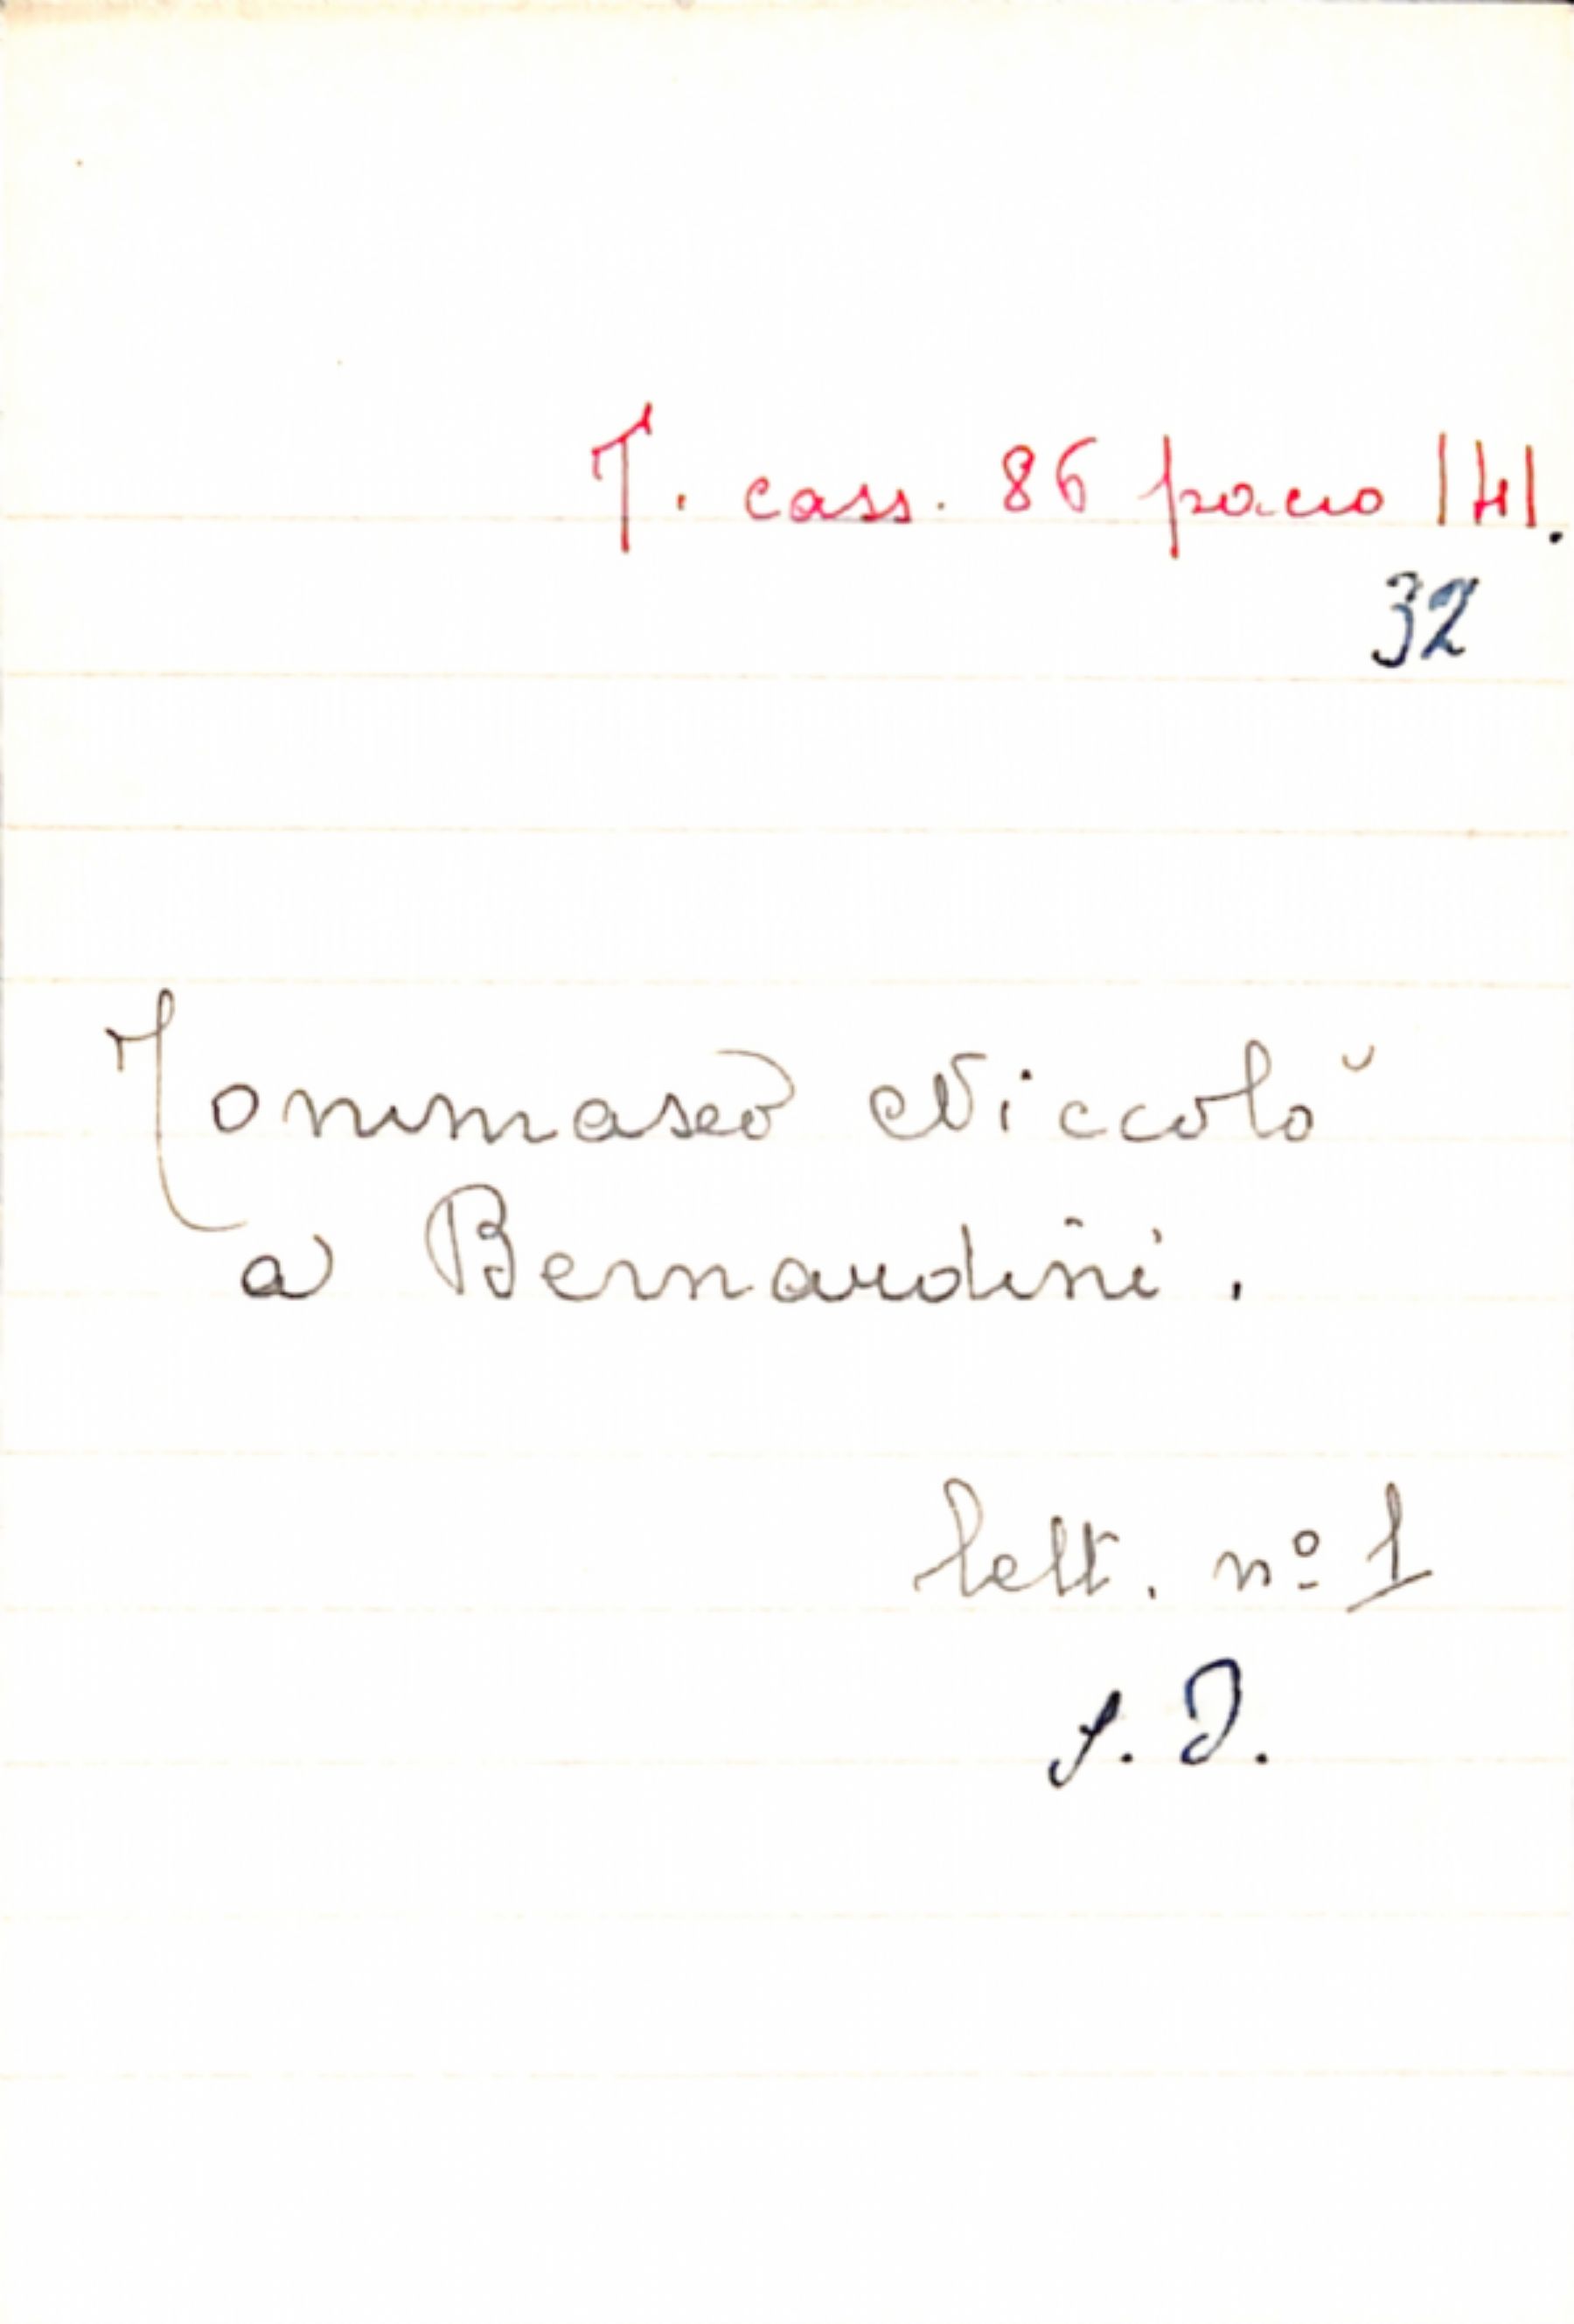 T. cass. 86 pacco 141.
32
Tommaseo Niccolò
a Bernardini.
lett. nº 1
s. D.